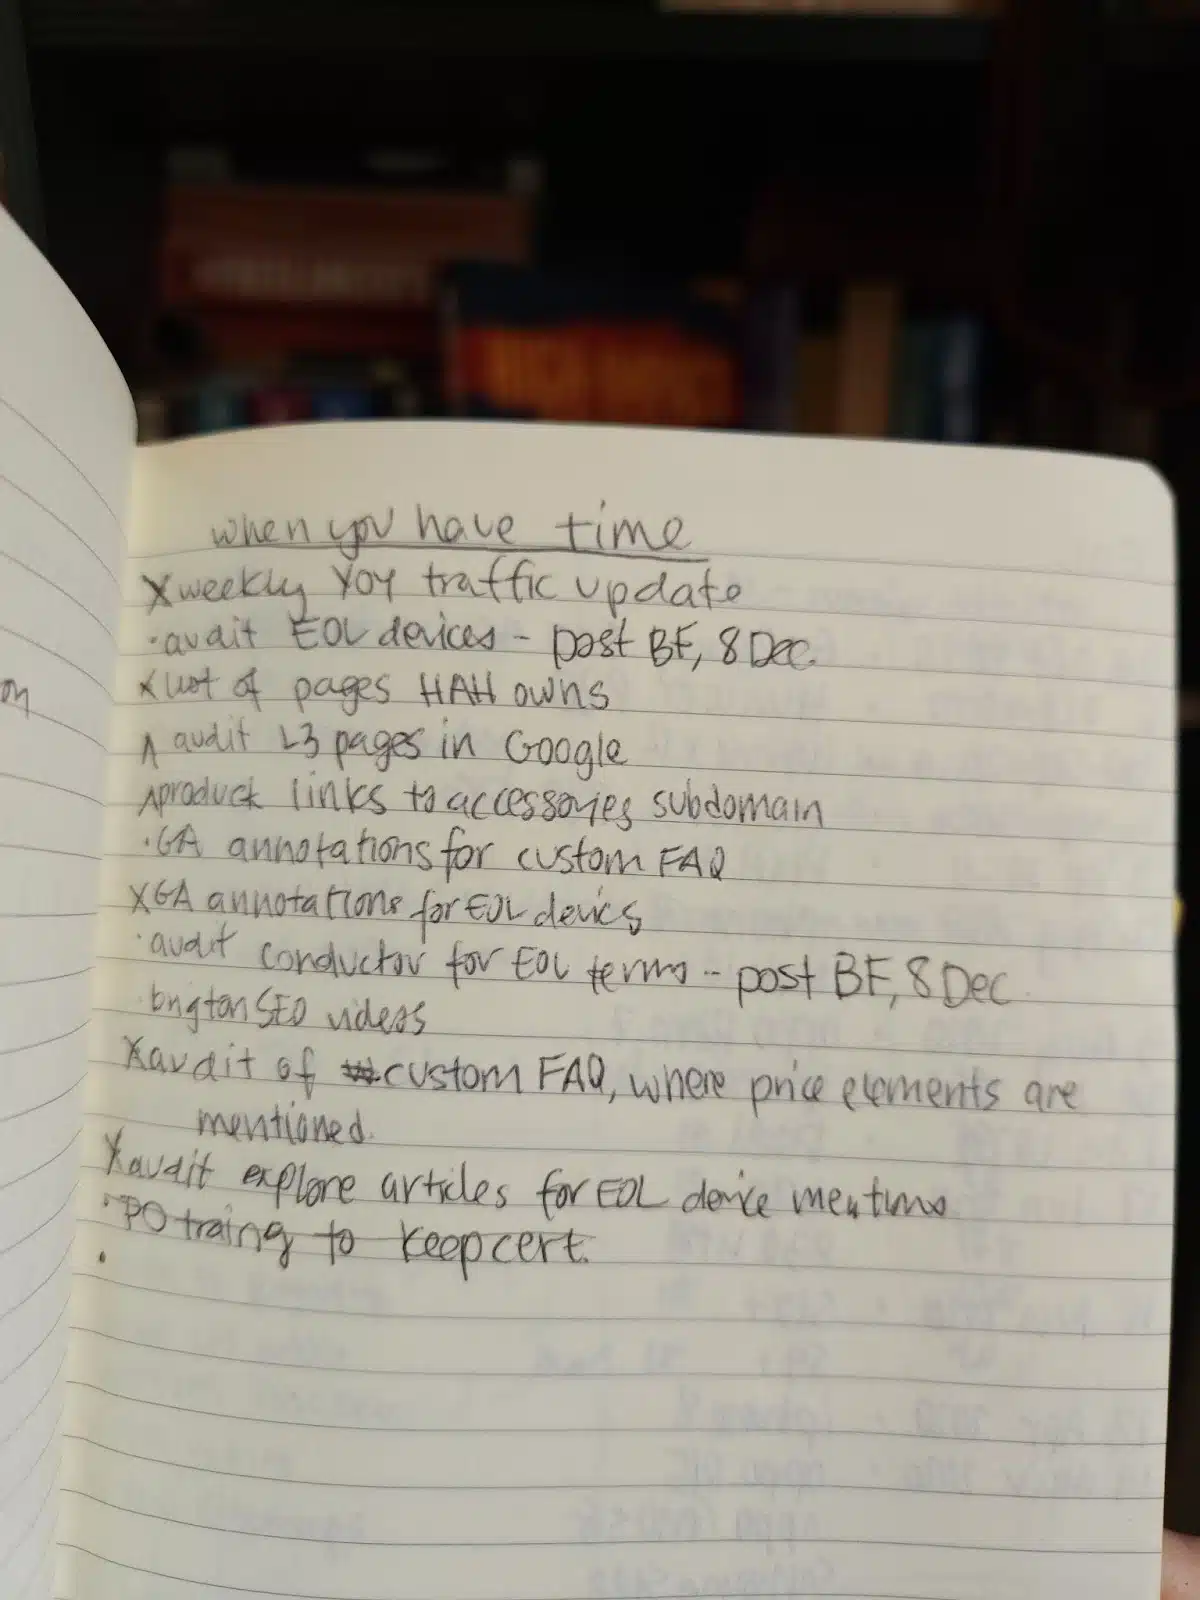 when you have time
X weekly YOY traffic update
· audit EOL devices - post BF, 8 Dec.
X list of pages HAH owns
Λ audit L3 pages in Google
Λ product links to accessories subdomain
· GA annotations for custom FAQ
X GA annotations for EOL devices
· audit conductor for EOL terms - post BF, 8 Dec
· brigtonSEO videos
X audit of custom FAQ, where price elements are
mentioned.
X audit explore articles for EOL device mentions
· PO traing to keep cert.
·
on